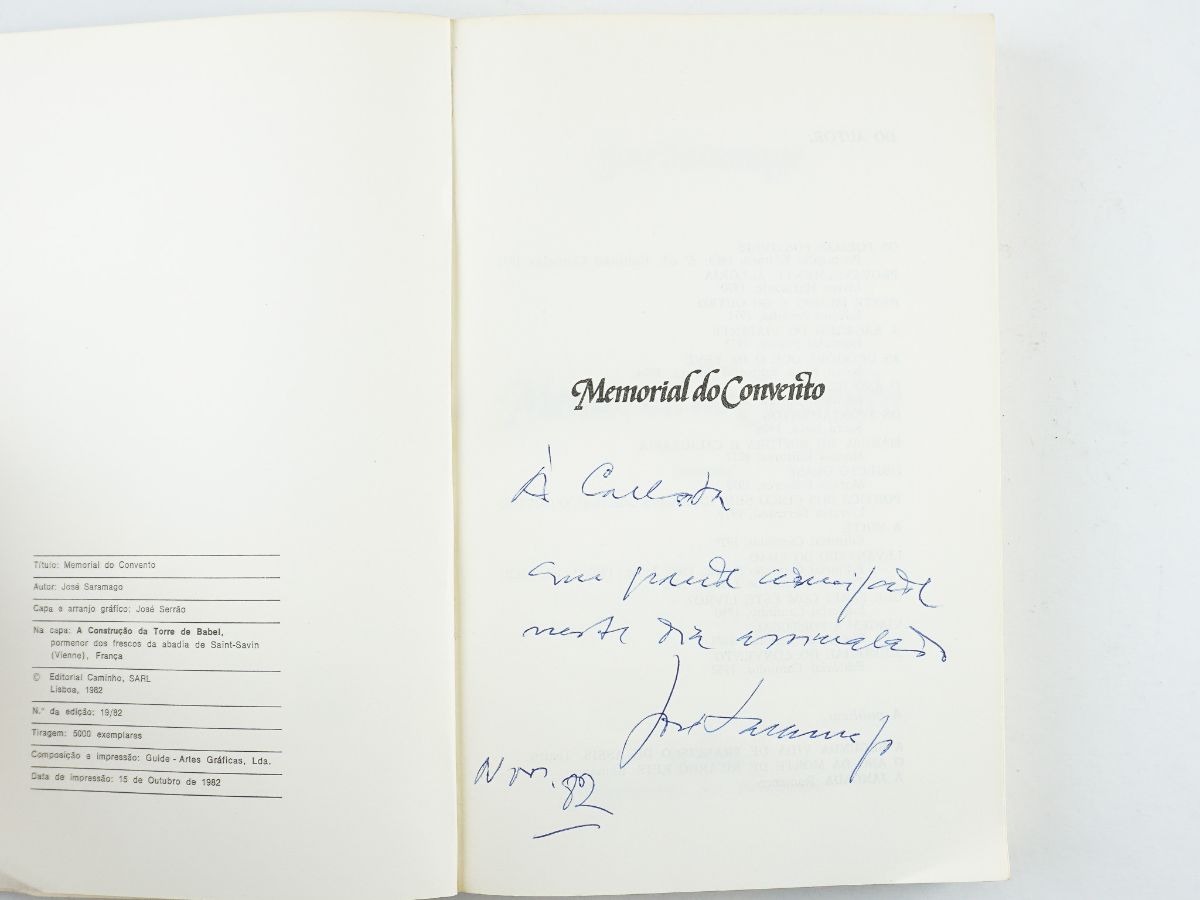 Título: Memorial do Convento
Autor: José Saramago
Capa e arranjo gráfico: José Serrão
Na capa: A Construção da Torre de Babel,
pormenor dos frescos da abadia de Saint-Savin
(Vienne), França
© Editorial Caminho, SARL
Lisboa, 1982
N.° da edição: 19/82
Tiragem: 5000 exemplares
Composição e impressão: Guide - Artes Gráficas, Lda.
Data de impressão: 15 de Outubro de 1982
Memorial do Convento
À Carlota
com grande amizade
neste dia assinalado
José Saramago
Nov. 82